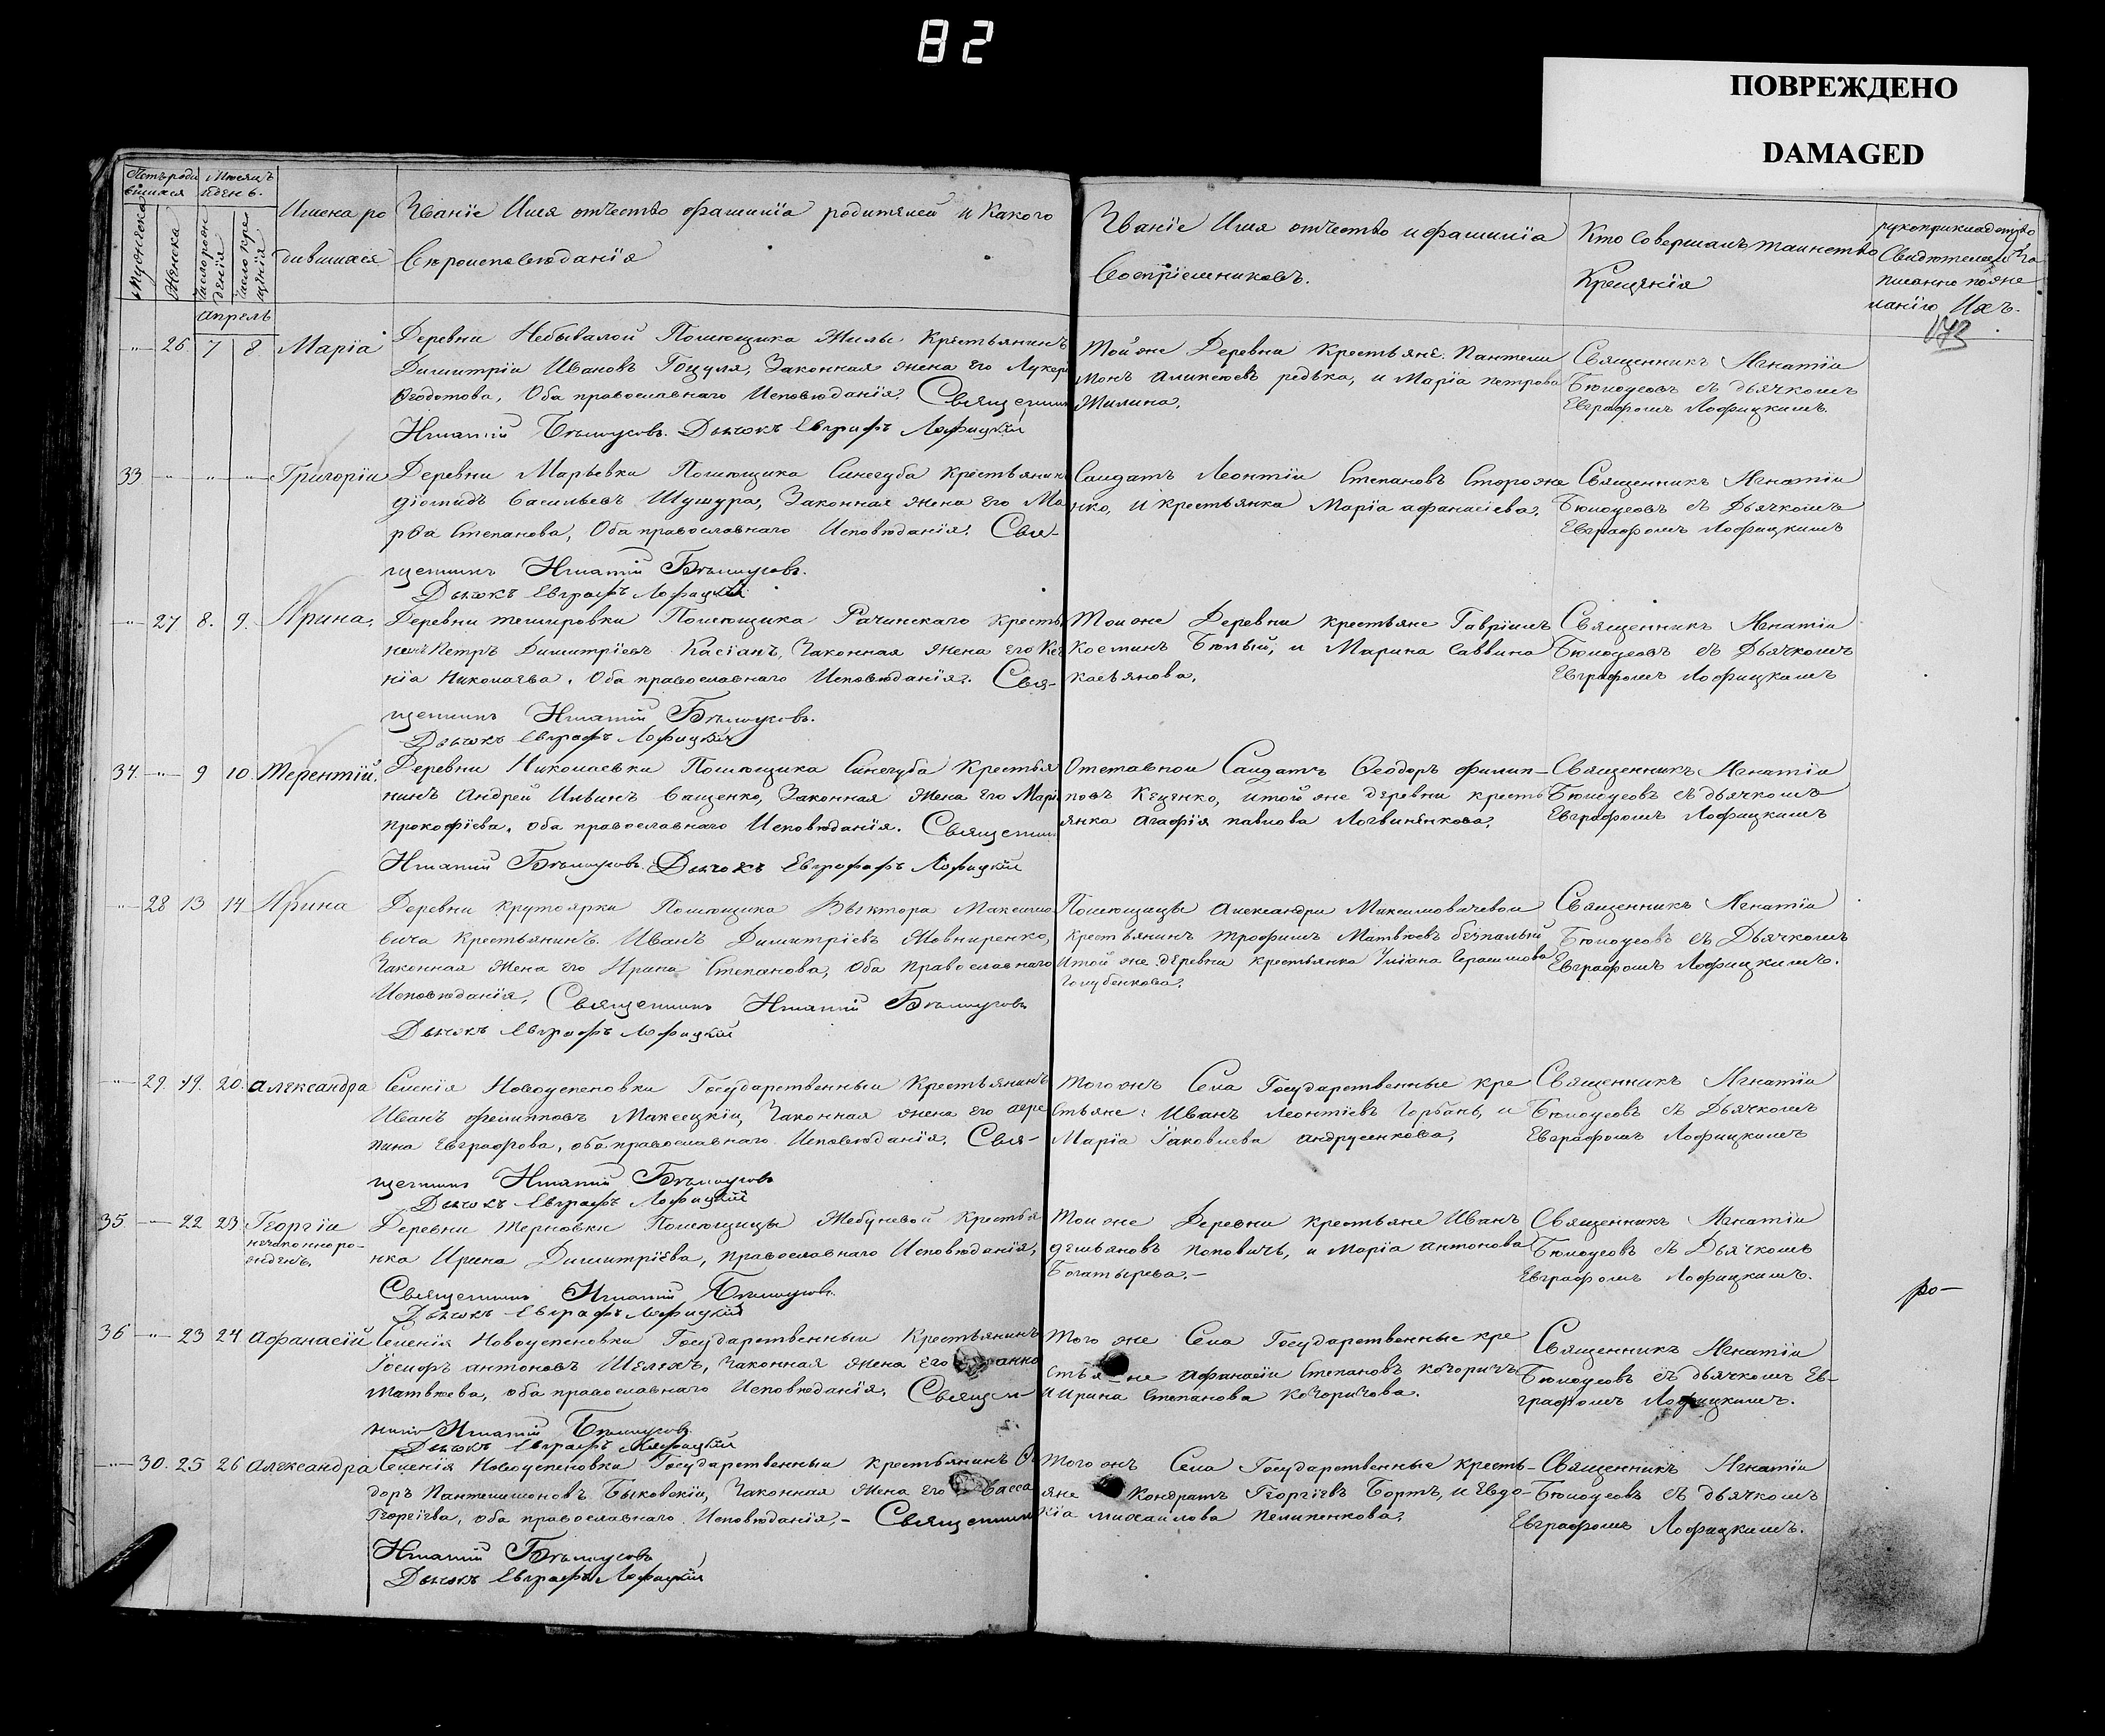 82
ПОВРЕЖДЕНО
DAMAGED
Имена ро
дившихся
Званіе Имя отчество фамилія родителей и Какого
Вѣроисповѣданія
Званіе Имя отчество и фамилія
Воспріемниковъ.
Кто Совершалъ таинство
Крещенія
Женска
Апрель
173
26 7 8 Марія
Деревни Небывалой Помѣщика Жилы Крестьянинъ
Димитрій Ивановъ Гоцуля, Законная жена Его Лукерія
Ѳеодотова, Оба православнаго Исповѣданія. Священникъ
Игнатій Бѣлоусовъ. Дьячокъ Евграфъ Лофицкій
Той же Деревни Крестьяне: Пантели
монъ Алексѣевъ редька, и Марія петрова
Жилина.
Священникъ Игнатій
Бѣлоусовъ съ дьячкомъ
Евграфомъ Лофицкимъ.
33 Григорій
Деревни Марьевки Помѣщика Синегуба Крестьянинъ
діомидъ Васильевъ Шушура, Законная жена Его Ма
рѳа Степанова, Оба православнаго Исповѣданія. Свя-
щенникъ Игнатій Бѣлоусовъ.
Дьячокъ Евграфъ Лофицкій
Салдатъ Леонтій Степановъ Стороже
нко, и крестьянка Марія афанасіева.
Священникъ Игнатій
Бѣлоусовъ съ Дьячкомъ
Евграфомъ Лофицкимъ
27 8. 9. Ирина.
Деревни Помѣщика Рачинскаго Кресть
Петръ Димитріевъ Касіанъ, Законная Жена Его
нія Николаева, Оба православнаго Исповѣданія. Свя-
щенникъ Игнатій Бѣлоусовъ.
Дьячокъ Евграфъ Лофицкій
Той же Деревни крестьяне Гавріилъ
Костинъ Бѣлый, и Марина Саввина
касьянова.
Священникъ Игнатій
Бѣлоусовъ съ Дьячкомъ
Евграфомъ Лофицкимъ
34. 9 10. Терентій.
Деревни Николаевки Помѣщика Синегуба Крестья
нинъ Андрей Ильинъ Ващенко, Законная Жена Его Марія
прокофіева, оба православнаго Исповѣданія. Священникъ
Игнатій Бѣлоусовъ. Дьячокъ Евграфъ Лофицкій
Отставной Салдатъ Ѳеодоръ филип-
повъ Кеценко, и той же деревни кресть
янка Агафія павлова Логвиненкова.
Священникъ Игнатій
Бѣлоусовъ съ дьячкомъ
Евграфомъ Лофицкимъ
28 13 14 Ирина
Деревни Крутоярки Помѣщика Выктора Максимо
вича Крестьянинъ Иванъ Димитріевъ Жовниренко,
Законная Жена его Ирина Степанова, Оба Православнаго
Исповѣданія. Священникъ Игнатій Бѣлоусовъ
Дьячокъ Евграфъ Лофицкій
Помѣщицы Александры Максимовичевой
Крестьянинъ трофимъ Матвѣевъ безпалый
И той же деревни крестьянка Герасимова
Голубенкова.
Священникъ Игнатій
Бѣлоусовъ съ Дьячкомъ
Евграфомъ Лофицкимъ.
29. 19. 20. Александра
Селенія Новоуспеновки Государственный Крестьянинъ
Иванъ филипповъ Макеецкій, Законная жена его агре
пина Евграфова, оба православнаго Исповѣданія. Свя-
щенникъ Игнатій Бѣлоусовъ
Дьячокъ Евграфъ Лофицкій
Того жъ Села Государственные кре
стьяне: Иванъ Леонтіевъ Горбань, и
Марія Іаковлева Андрусенкова.
Священникъ Игнатій
Бѣлоусовъ съ Дьячкомъ
Евграфомъ Лофицкимъ
35 22 23 Георгій
незаконноро-
жденъ.
Деревни Терновки Помѣщицы Жебуневой Крестья
нка Ирина Димитріева, Православнаго Исповѣданія,
Священникъ Игнатій Бѣлоусовъ.
Дьячокъ Евграфъ Лофицкій
Той же Деревни Крестьяне Иванъ
демьяновъ поповичъ, и Марія антонова
Богатырева.-
Священникъ Игнатій
Бѣлоусовъ съ Дьячкомъ
Евграфомъ Лофицкимъ.
36 23 24 Афанасій
Селенія Новоуспеновки Государственный Крестьянинъ
Іосифъ антоновъ Шеляхъ, законная жена его анна
Матвѣева, оба православнаго Исповѣданія. Священ
никъ Игнатій Бѣлоусовъ
Дьячокъ Евграфъ Лофицкій
Того же Села Государственные кре
стья-не Афанасій Степановъ козоризъ
И Ирина Степанова Козоризова.
Священникъ Игнатій
Бѣлоусовъ съ дьячкомъ Ев-
графомъ Лофицкимъ.
30. 25 26 Александра
Селенія Новоуспеновки Государственный крестьянинъ Ѳ
доръ Пантелимоновъ Быковскій, Законная Жена Его Васса
Георгіева, оба православнаго Исповѣданія.- Священникъ
Игнатій Бѣлоусовъ
Дьячокъ Евграфъ Лофицкій
Того жъ Села Государственные кресть-
яне Кондратъ Георгіевъ Бортъ, и Евдо-
кія михайлова Пелипенкова.
Священникъ Игнатій
Бѣлоусовъ съ дьячкомъ
Евграфомъ Лофицкимъ.
ро-